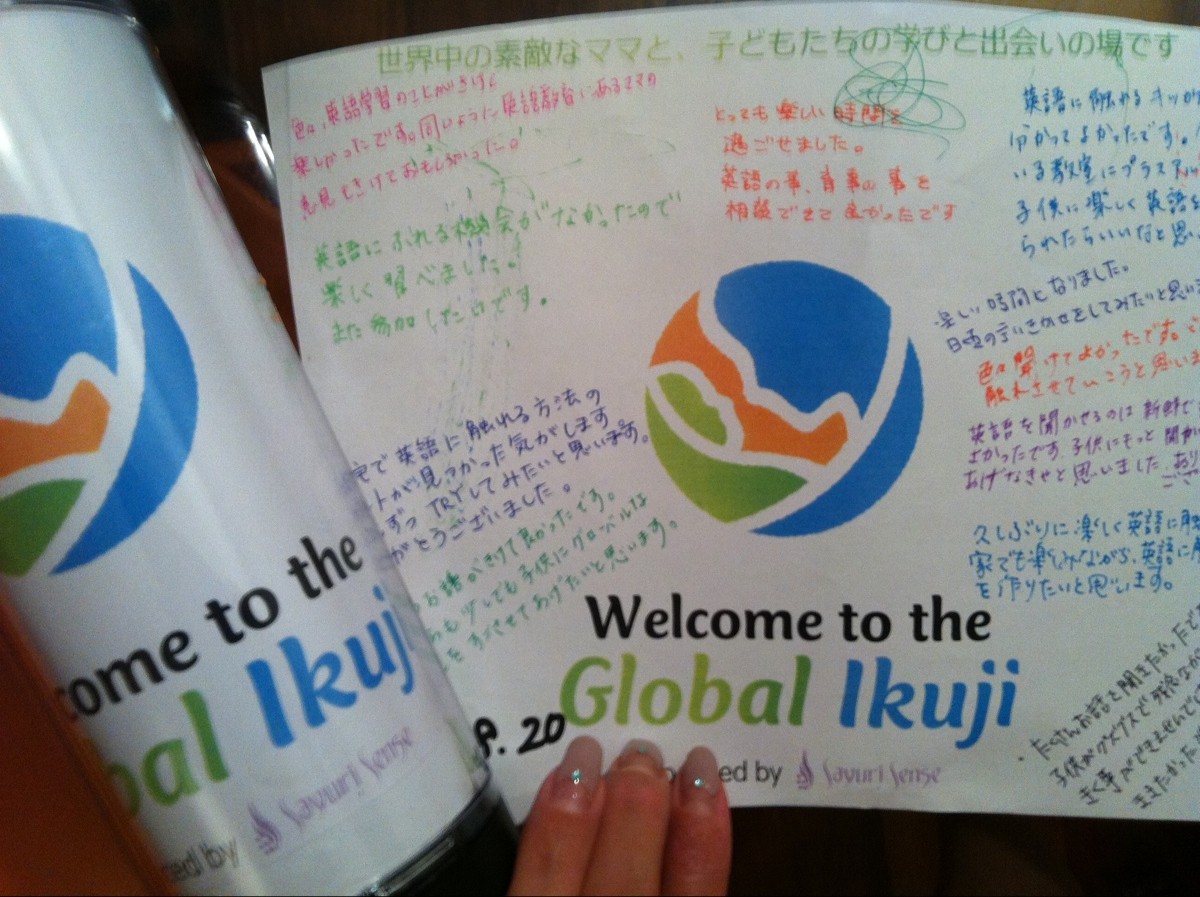 世界中の素敵なママと、子どもたちの学びと出会いの場です
色々、英語学習のことがきけて
楽しかったです。同じような英語教育にあるママの
意見もきけておもしろかった。
英語にふれる機会がなかったので
楽しく習べました。
また参加したいです。
とっても楽しい時間を
過ごせました。
英語の事、育事の事を
相談できて良かったです
英語に触れるキッカケ
分かってよかったです。
いる教室にプラスアルフ
子供に楽しく英語を
られたらいいなと思い
楽しい時間となりました。
日頃の言いきかせをしてみたいと思いま
色々聞けてよかったです。
触れさせていこうと思いま
英語を聞かせるのは新鮮で
よかったです 子供にもっと聞か
あげなきゃと思いました あり
ござ
久しぶりに楽しく英語に触
家でも楽しみながら、英語に
を作りたいと思います。
で英語に触れる方法の
ントが見つかった気がします
ずつTRYしてみたいと思います。
がとうございました。
お話がきけて良かったです。
も少しでも子供にグローバルな
をすごさせてあげたいと思います。
たくさんお話を聞きたかったで
子供がグズグズで残念なが
きく事ができませんで
Welcome to the
Global Ikuji
P. 20
ed by Savuri Sense
come to the
bal Ikuji
ted by Savuri Sense